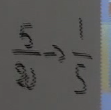 5/20 → 1/5